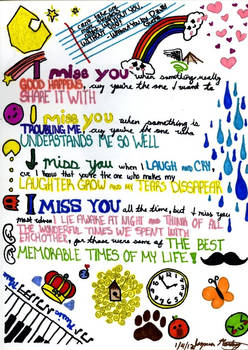 I miss you when something really
GOOD HAPPENS, cuz you're the one I want to
SHARE IT WITH
I miss you when something is
TROUBLING ME, cuz you're the one who
UNDERSTANDS ME SO WELL
I miss you when I LAUGH AND CRY,
cuz I know that you're the one who makes my
LAUGHTER GROW and my TEARS DISAPPEAR
I MISS YOU all the time, but I miss you
most when I LIE AWAKE AT NIGHT AND THINK OF ALL
THE WONDERFUL TIMES WE SPENT WITH
EACHOTHER, for those were some of THE BEST
MEMORABLE TIMES OF MY LIFE!
Music